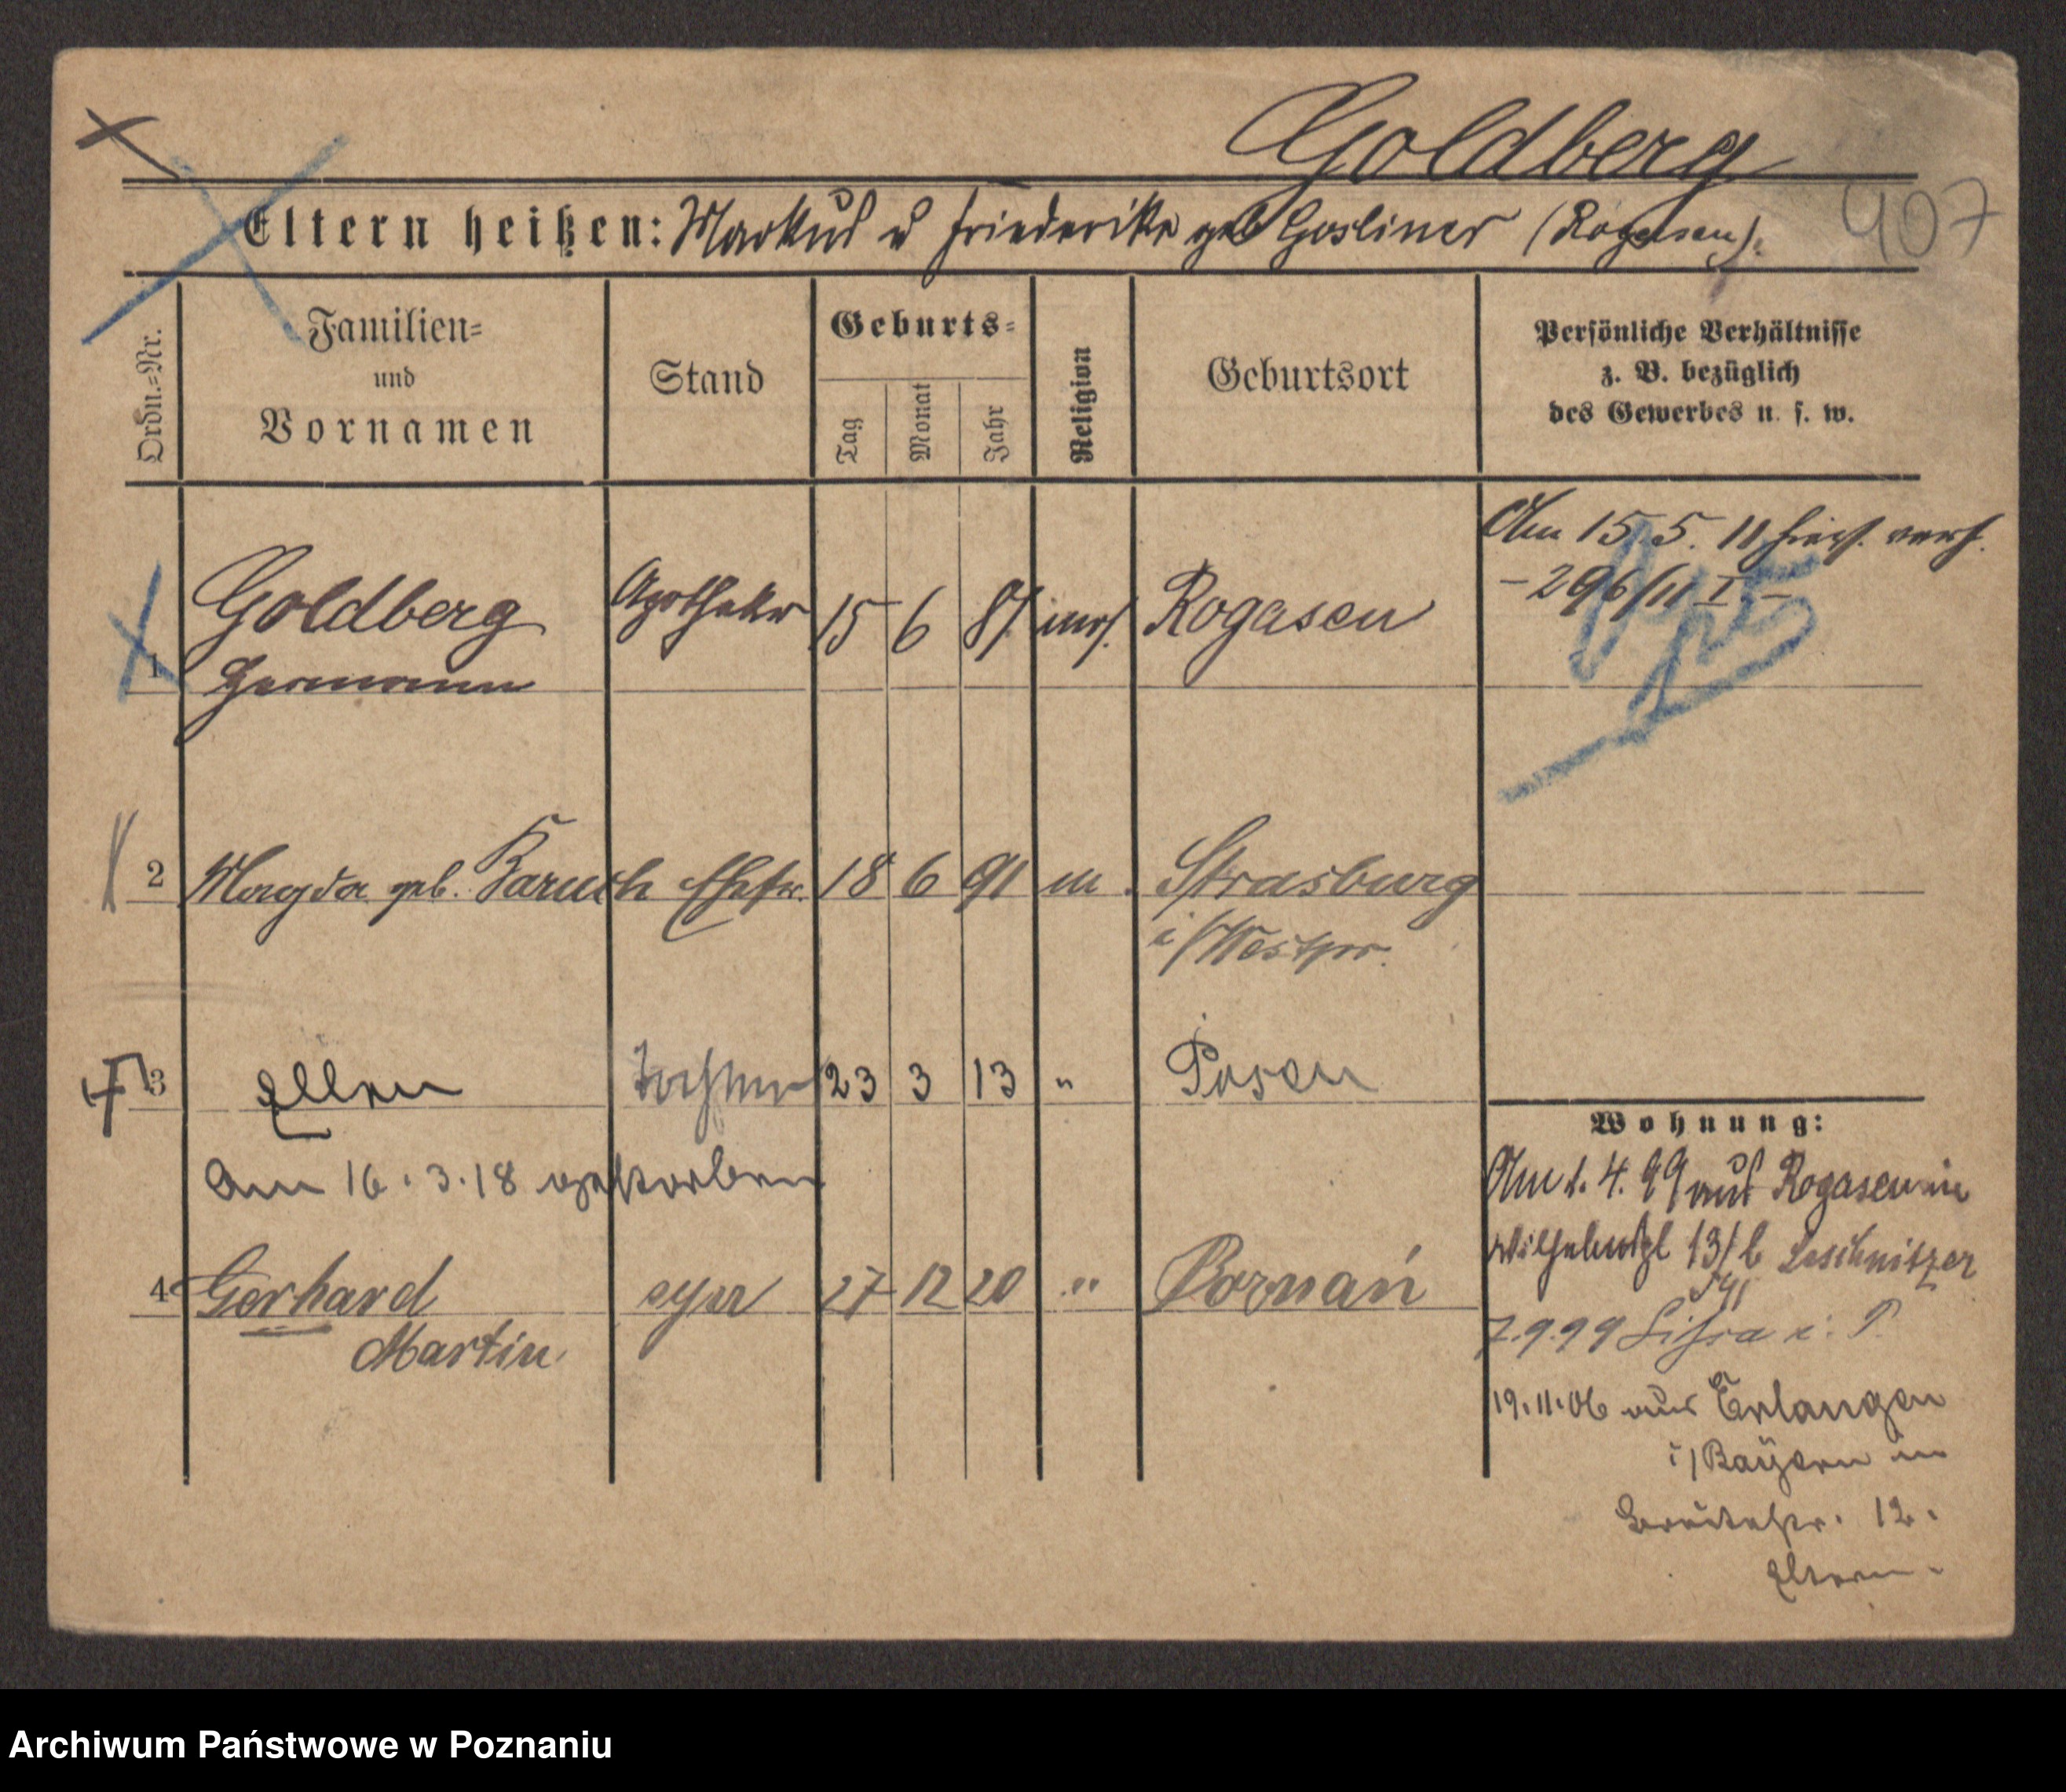 Goldberg
Eltern heißen: Markus u Friederike geb Gosliner (Rogasen).
407
Ordn.=Nr.
Familien=
und
Vornamen
Stand
Geburts=
Tag
Monat
Jahr
Religion
Geburtsort
Persönliche Verhältnisse
z. B. bezüglich
des Gewerbes u. s. w.
Am 15.5.11 hier verh.
-296/11 I-
1 Goldberg Apotheker 15 6 81 mos. Rogasen
Hermann
2 Magda geb. Baruch Ehefr. 18 6 91 m. Strasburg
i/Westpr.
3 Ellen Tochter 23 3 13 " Posen
Am 16.3.18 gestorben
4 Gerhard syn 27 12 20 " Poznań
Martin
Wohnung:
Am 1.4.99 aus Rogasen in
Wilhelmspl 13/b Leschnitzer
7.9.99 Lissa i. P.
19.11.06 aus Erlangen
i/Bayern in
Breitestr. 12.
Eltern.
Archiwum Państwowe w Poznaniu